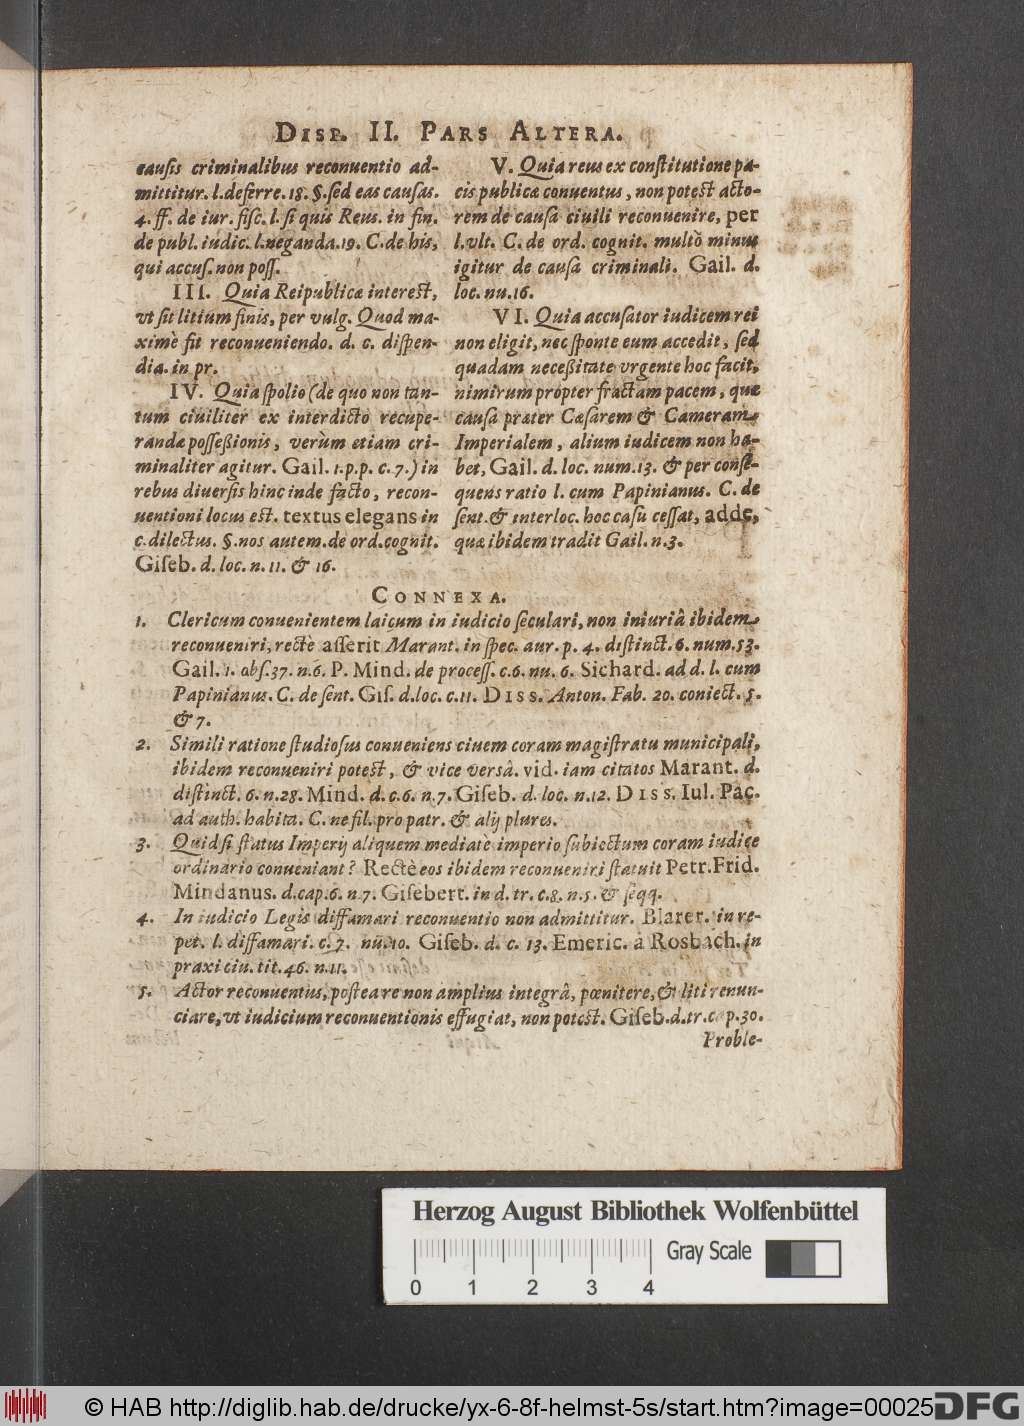 DISP. II. PARS ALTERA.
causis criminalibus reconuentio ad-
mittitur. l. deferre. 18. §. sed eas causas.
4. ff. de iur. fisc. l. si quis Reus. in fin.
de publ. iudic. l. neganda. 19. C. de his,
qui accus. non poss.
III. Quia Reipublicæ interest,
vt sit litium finis, per vulg. Quod ma-
ximè fit reconueniendo. d. c. dispen-
dia. in pr.
IV. Quia spolio (de quo non tan-
tum ciuiliter ex interdicto recupe-
randæ possessionis, verùm etiam cri-
minaliter agitur. Gail. 1. p. p. c. 7.) in
rebus diuersis hinc inde facto, recon-
uentioni locus est. textus elegans in
c. dilectus. §. nos autem. de ord. cognit.
Giseb. d. loc. n. 11. & 16.
V. Quia reus ex constitutione pa-
cis publicæ conuentus, non potest acto-
rem de causa ciuili reconuenire, per
l. vlt. C. de ord. cognit. multò minus
igitur de causa criminali. Gail. d.
loc. nu. 16.
VI. Quia accusator iudicem rei
non eligit, nec sponte eum accedit, sed
quadam necessitate vrgente hoc facit,
nimirum propter fractam pacem, quæ
causa præter Cæsarem & Cameram
Imperialem, alium iudicem non ha-
bet, Gail. d. loc. num. 13. & per conse-
quens ratio l. cum Papinianus. C. de
sent. & interloc. hoc casu cessat, adde,
quæ ibidem tradit Gail. n. 3.
CONNEXA.
1. Clericum conuenientem laicum in iudicio seculari, non iniuriâ ibidem
reconueniri, rectè asserit Marant. in spec. aur. p. 4. distinct. 6. num. 53.
Gail. 1. obs. 37. n. 6. P. Mind. de process. c. 6. nu. 6. Sichard. ad d. l. cum
Papinianus. C. de sent. Gis. d. loc. c. 11. DISS. Anton. Fab. 20. coniect. 5.
& 7.
2. Simili ratione studiosus conueniens ciuem coram magistratu municipali,
ibidem reconueniri potest, & vice versâ. vid. iam citatos Marant. d.
distinct. 6. n. 28. Mind. d. c. 6. n. 7. Giseb. d. loc. n. 12. DISS. Iul. Pac.
ad auth. habita. C. ne fil. pro patr. & alij plures.
3. Quid si status Imperij aliquem mediatè imperio subiectum coram iudice
ordinario conueniant? Rectè eos ibidem reconueniri statuit Petr. Frid.
Mindanus. d. cap. 6. n. 7. Gisebert. in d. tr. c. 8. n. 5. & seqq.
4. In iudicio Legis diffamari reconuentio non admittitur. Blarer. in re-
pet. l. diffamari. c. 7. nu. 10. Giseb. d. c. 13. Emeric. à Rosbach. in
praxi ciu. tit. 46. n. 11.
5. Actor reconuentus, postea re non amplius integrâ, pœnitere, & liti renun-
ciare, vt iudicium reconuentionis effugiat, non potest. Giseb. d. tr. cap. 30.
Proble-
Herzog August Bibliothek Wolfenbüttel
Gray Scale
0 1 2 3 4
© HAB http://diglib.hab.de/drucke/yx-6-8f-helmst-5s/start.htm?image=00025
DFG